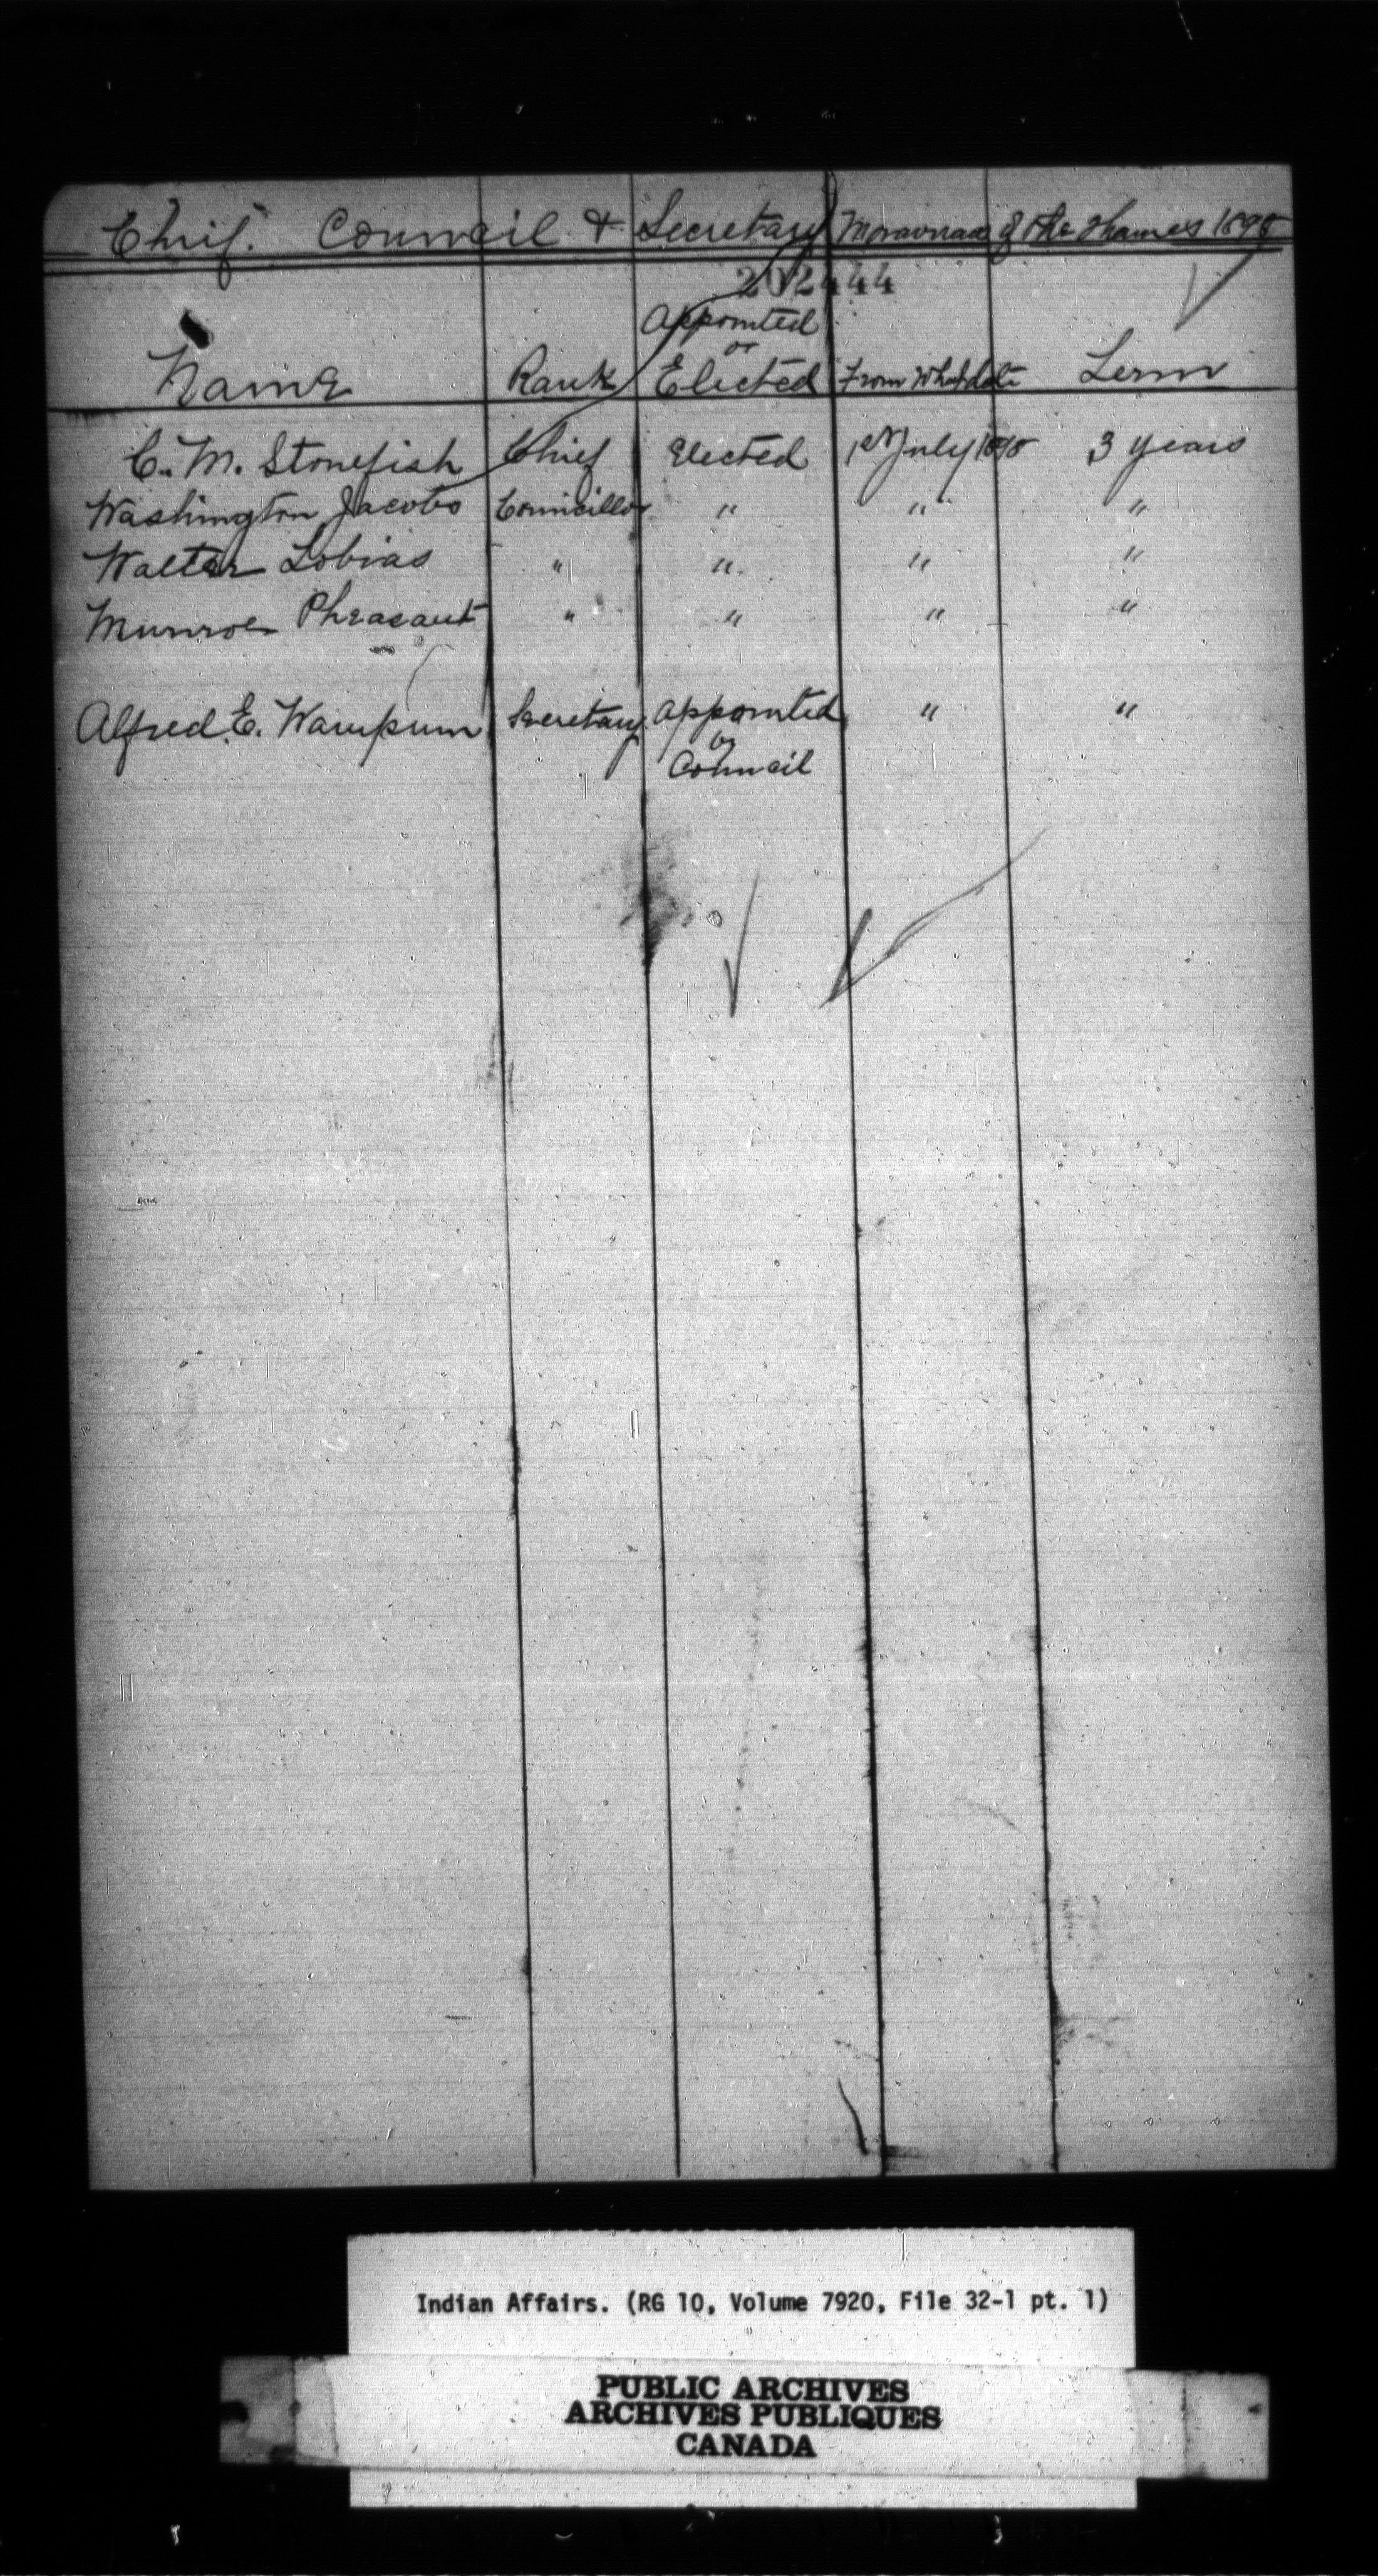 Chief. Council & Secretary Moravians of the Thames 1898
202444
Name Rank Appointed or Elected From What date Term
C. M. Stonefish Chief Elected 1st July 1898 3 years
Washington Jacobs Councillor " " "
Walter Tobias " " " "
Munroe Pheasant " " " "
Alfred E. Wampum Secretary appointed by Council " "
Indian Affairs. (RG 10, Volume 7920, File 32-1 pt. 1)
PUBLIC ARCHIVES
ARCHIVES PUBLIQUES
CANADA